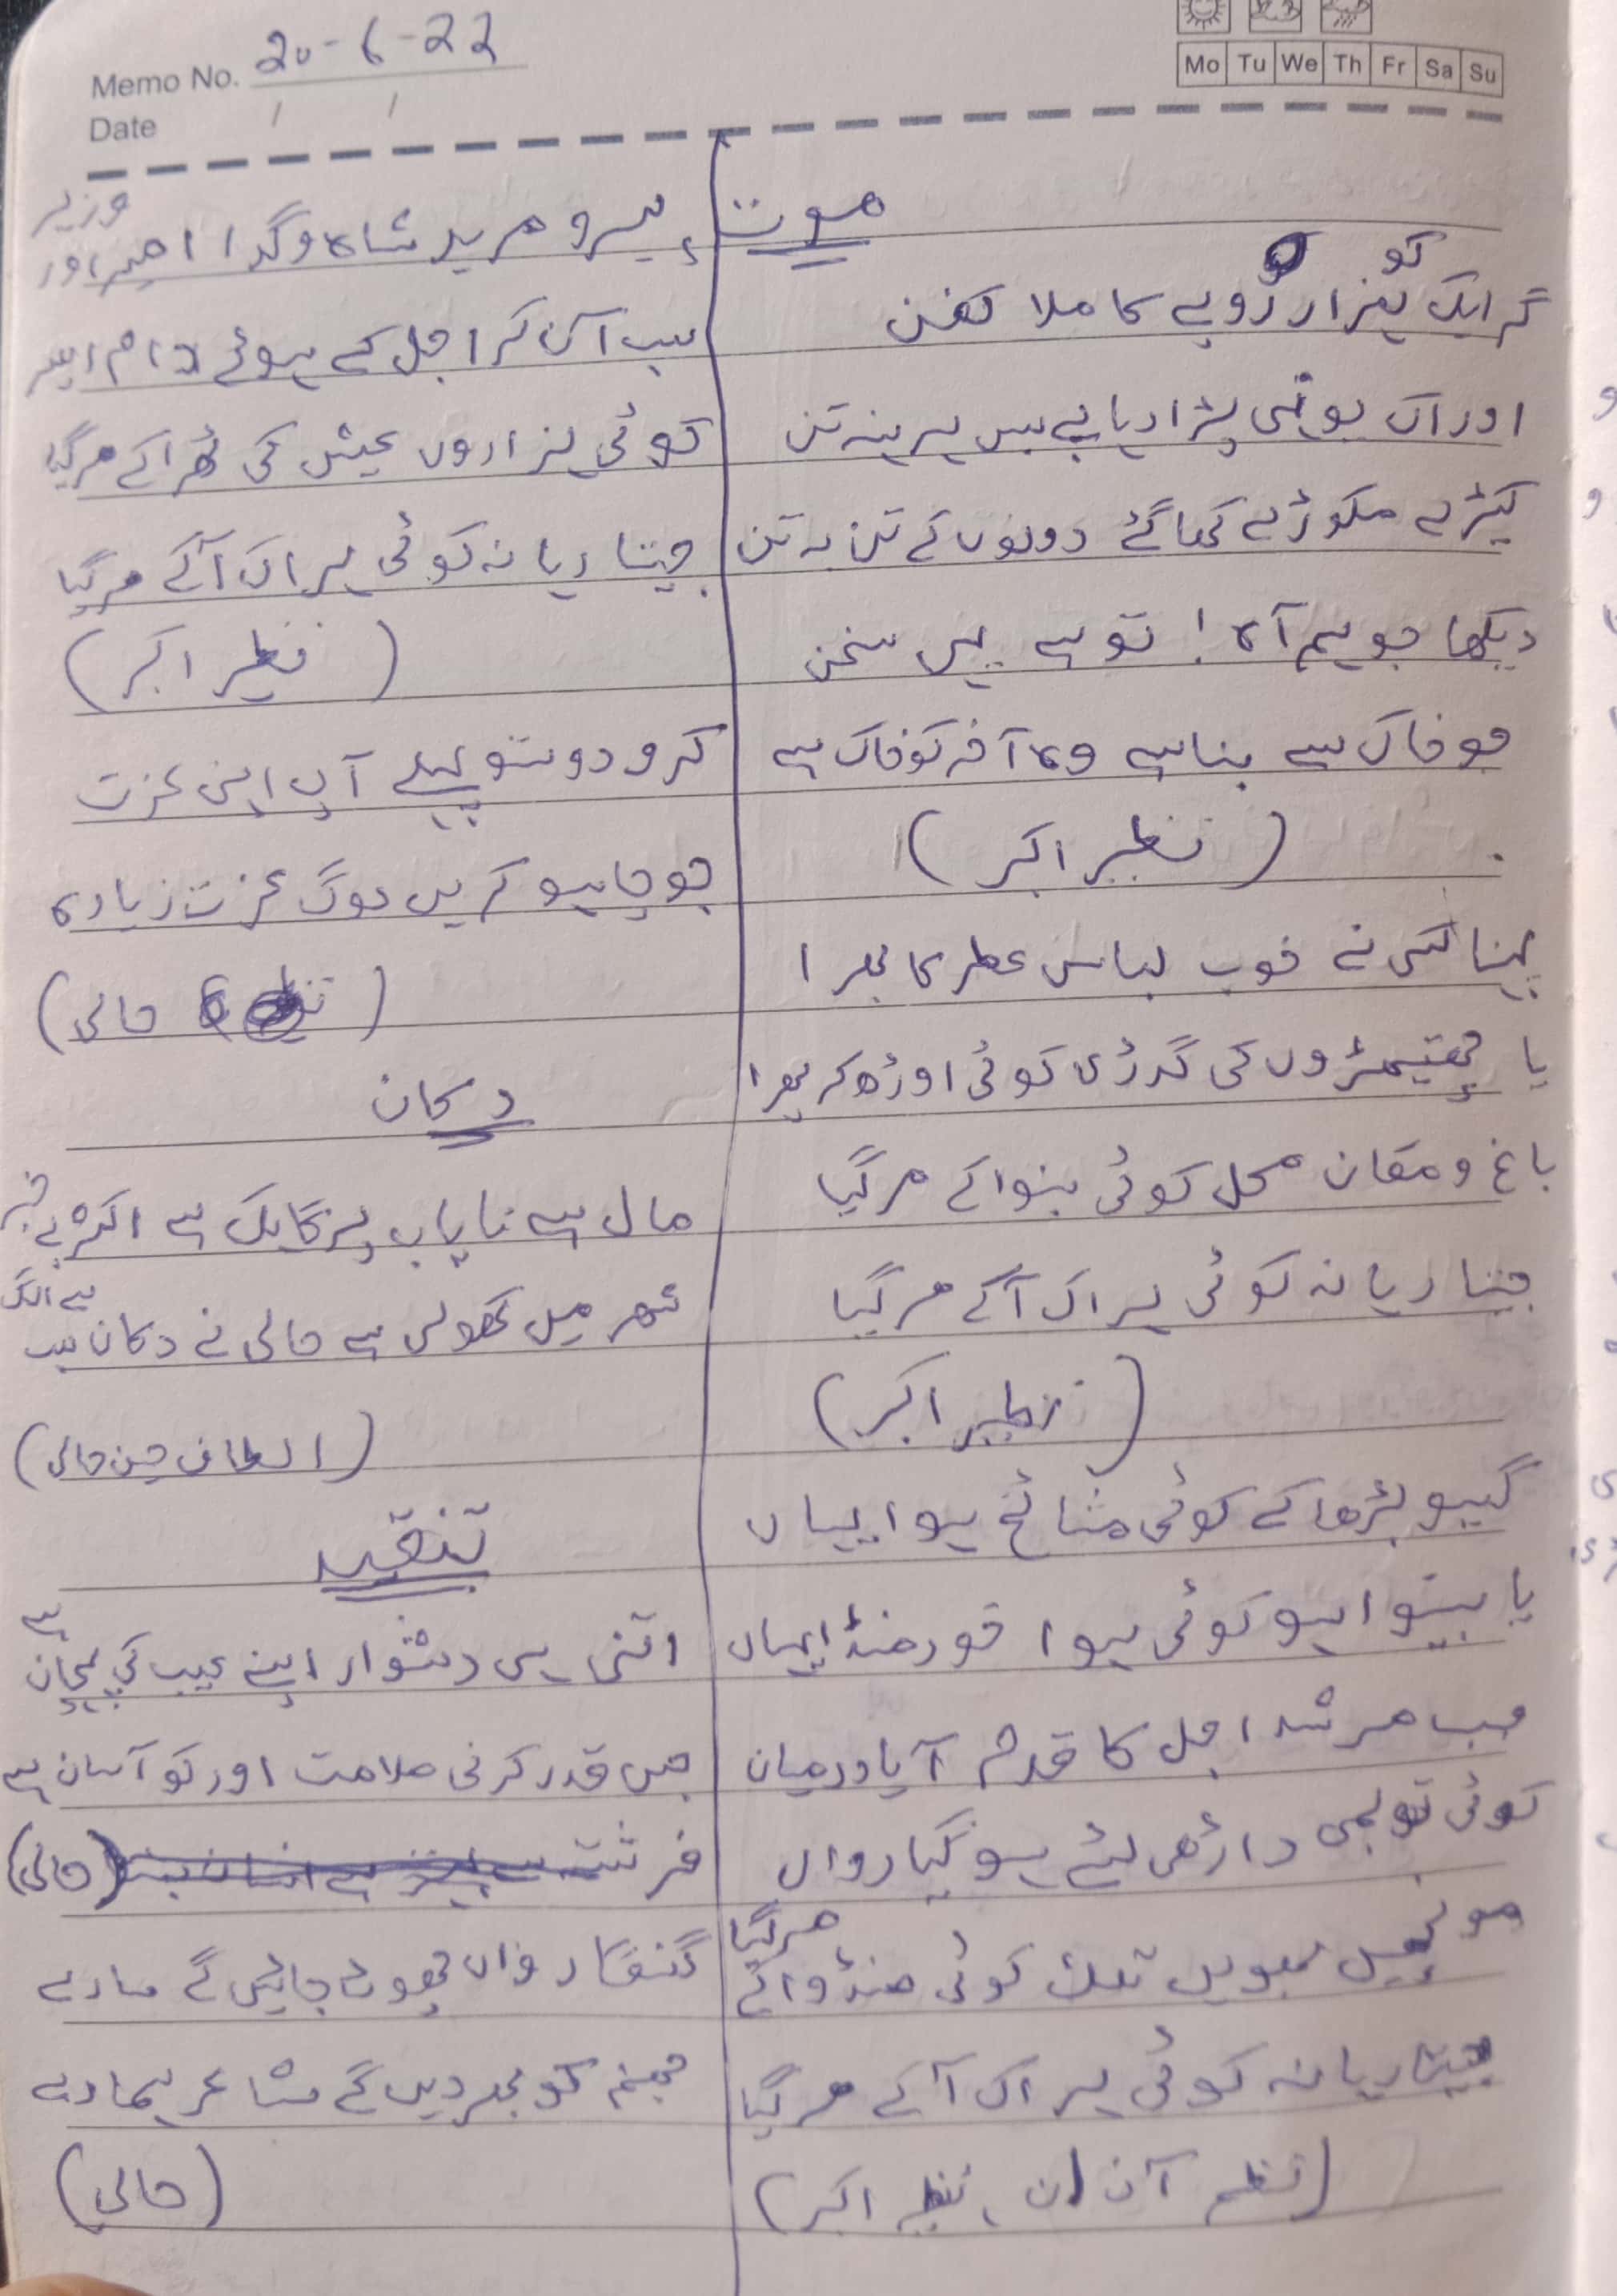 Memo No. 20-6-22
Date / /
Mo Tu We Th Fr Sa Su
موت
گر ایک کو ہزار روپے کا ملا کفن
اور اک یونہی پڑا رہا بے بس برہنہ تن
کیڑے مکوڑے کھا گئے دونوں کے تن بہ تن
دیکھا جو ہم آہ! تو ہے یہی سخن
جو خاک سے بنا ہے وہ آخر کو خاک ہے
(نظیر اکبر)
پہنا کسی نے خوب لباس عطر کا بھرا
یا چھتیھڑوں کی گدڑی کوئی اوڑھ کر پھرا
باغ و مکان محل کوئی بنوا کے مر گیا
جیتا رہا نہ کوئی ہر اک آ کے مر گیا
(نظیر اکبر)
گیسو بڑھا کے کوئی مشائخ ہوا یہاں
یا بینوا ہو کوئی ہوا خود منڈا یہاں
جب مرشد اجل کا قدم آیا درمیان
کوئی تو لمبی داڑھی لئے ہو گیا رواں
مونچھیں بھویں تلک کوئی منڈوا کے مر گیا
جیتا رہا نہ کوئی ہر اک آ کے مر گیا
(نظم آن ان ، نظیر اکبر)
پیر و مرید شاہ و گدا امیر اور وزیر
سب آن کر اجل کے ہوئے دام اسیر
کوئی ہزاروں عیش کی ٹھرا کے مر گیا
جیتا رہا نہ کوئی ہر اک آ کے مر گیا
(نظیر اکبر)
کرو دوستو پہلے آپ اپنی عزت
جو چاہو کریں لوگ عزت زیادہ
(حالی)
دکان
مال ہے نایاب پر گاہک ہے اکثر بے خبر
شہر میں کھولی ہے حالی نے دکان سب سے الگ
(الطاف حسن حالی)
تنقید
اتنی ہی دشوار اپنے عیب کی پہچان ہے
جس قدر کرنی ملامت اور کو آسان ہے
(حالی)
گنہگار واں چھوٹ جائیں گے سارے
جہنم کو بھر دیں گے شاعر ہمارے
(حالی)